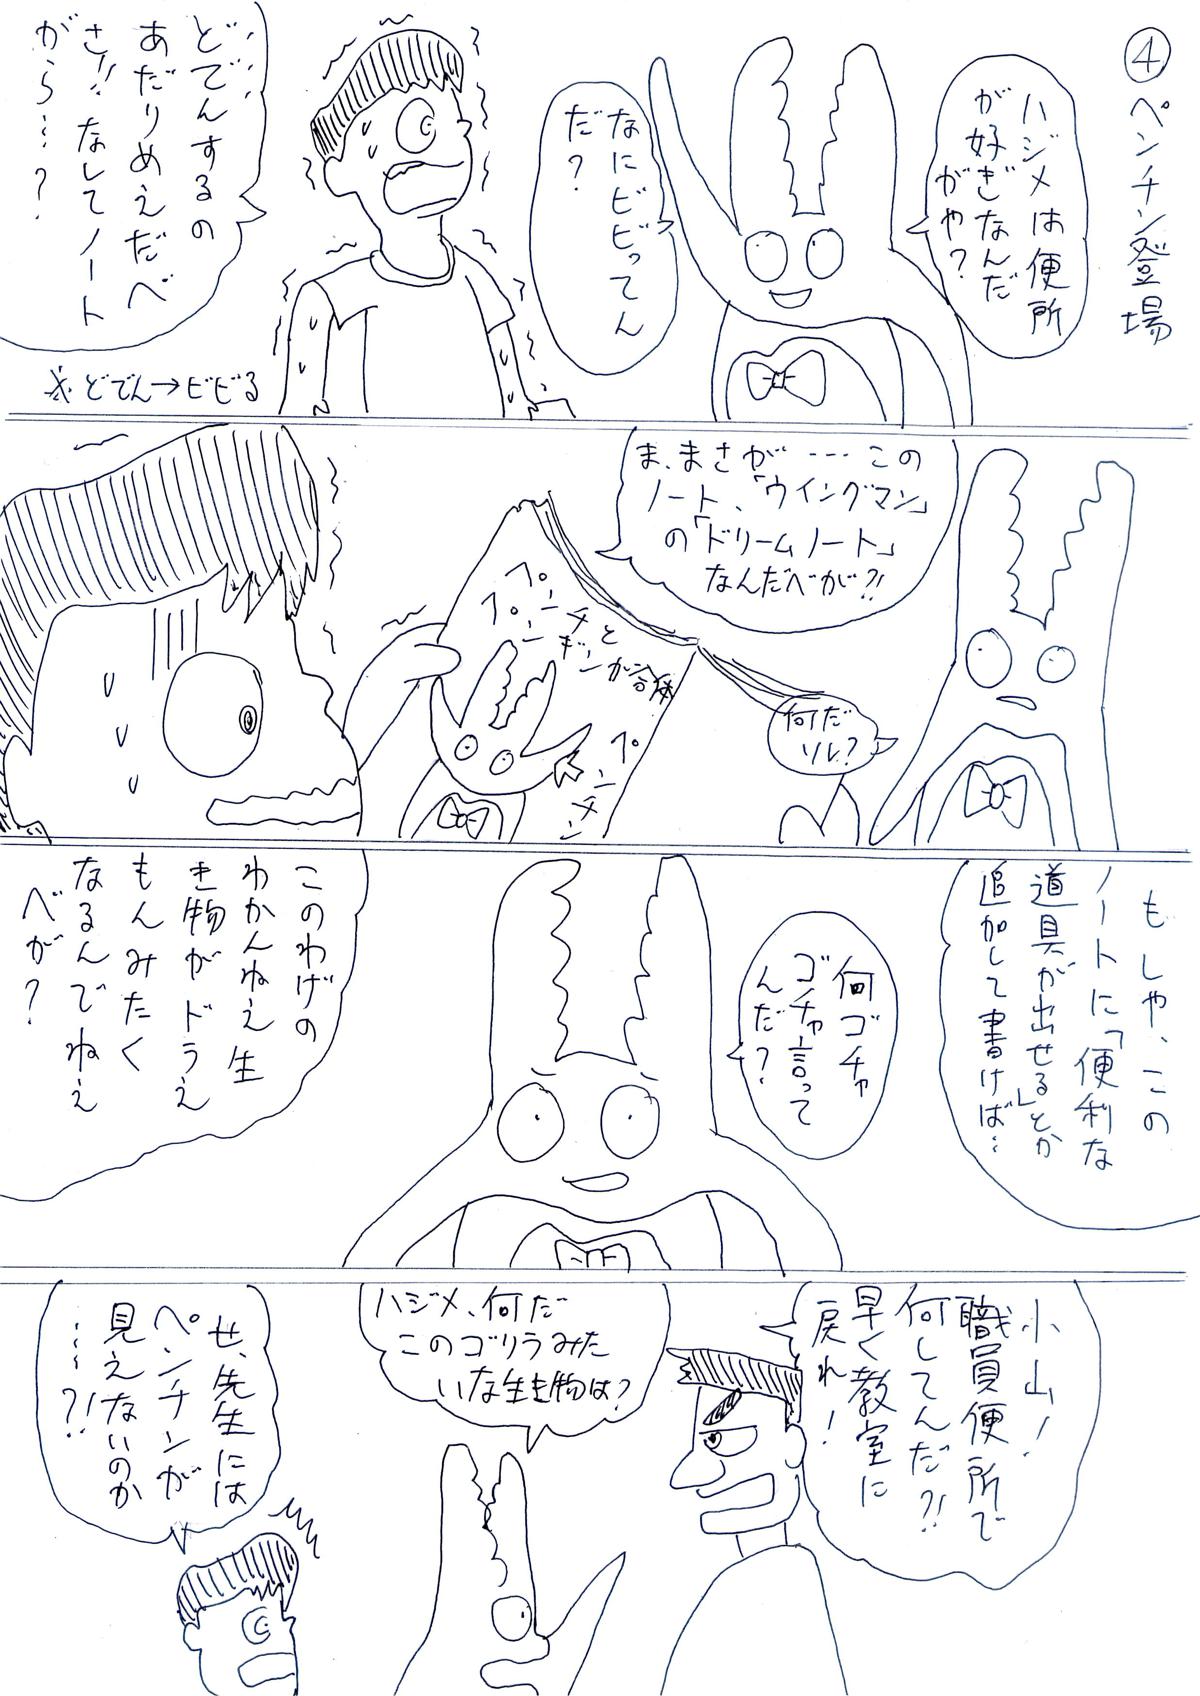 ④ペンチン登場
ハジメは便所
が好ぎなんだ
がや？
なにビビってん
だ？
どでんするの
あだりめえだべ
さ!!なしてノート
がら…？
※どでん→ビビる
ま、まさが…この
ノート、「ウイングマン」
の「ドリームノート」
なんだべが?!
何だ
ソレ？
ペンチと
ペンギンが合体
ペンチン
もしや、この
ノートに「便利な
道具が出せる」とか
追加して書けば…
何ゴチャ
ゴチャ言って
んだ？
このわげの
わかんねえ生
き物がドラえ
もんみたく
なるんでねえ
べが？
小山！
職員便所で
何してんだ?!
早く教室に
戻れ！
ハジメ、何だ
このゴリラみた
いな生き物は？
せ、先生には
ペンチンが
見えないのか
……?!